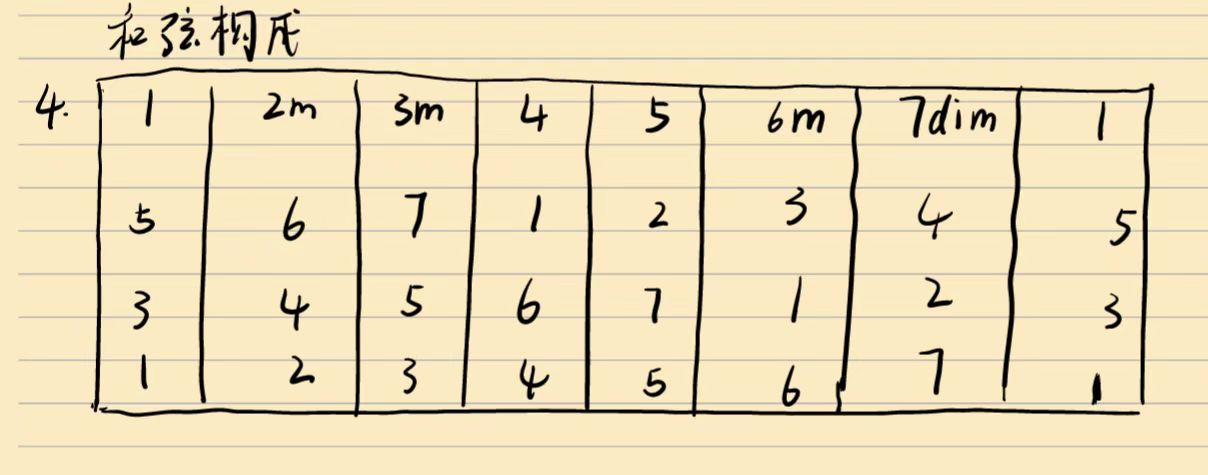 和弦构成
4. 1 2m 3m 4 5 6m 7dim 1
5 6 7 1 2 3 4 5
3 4 5 6 7 1 2 3
1 2 3 4 5 6 7 1